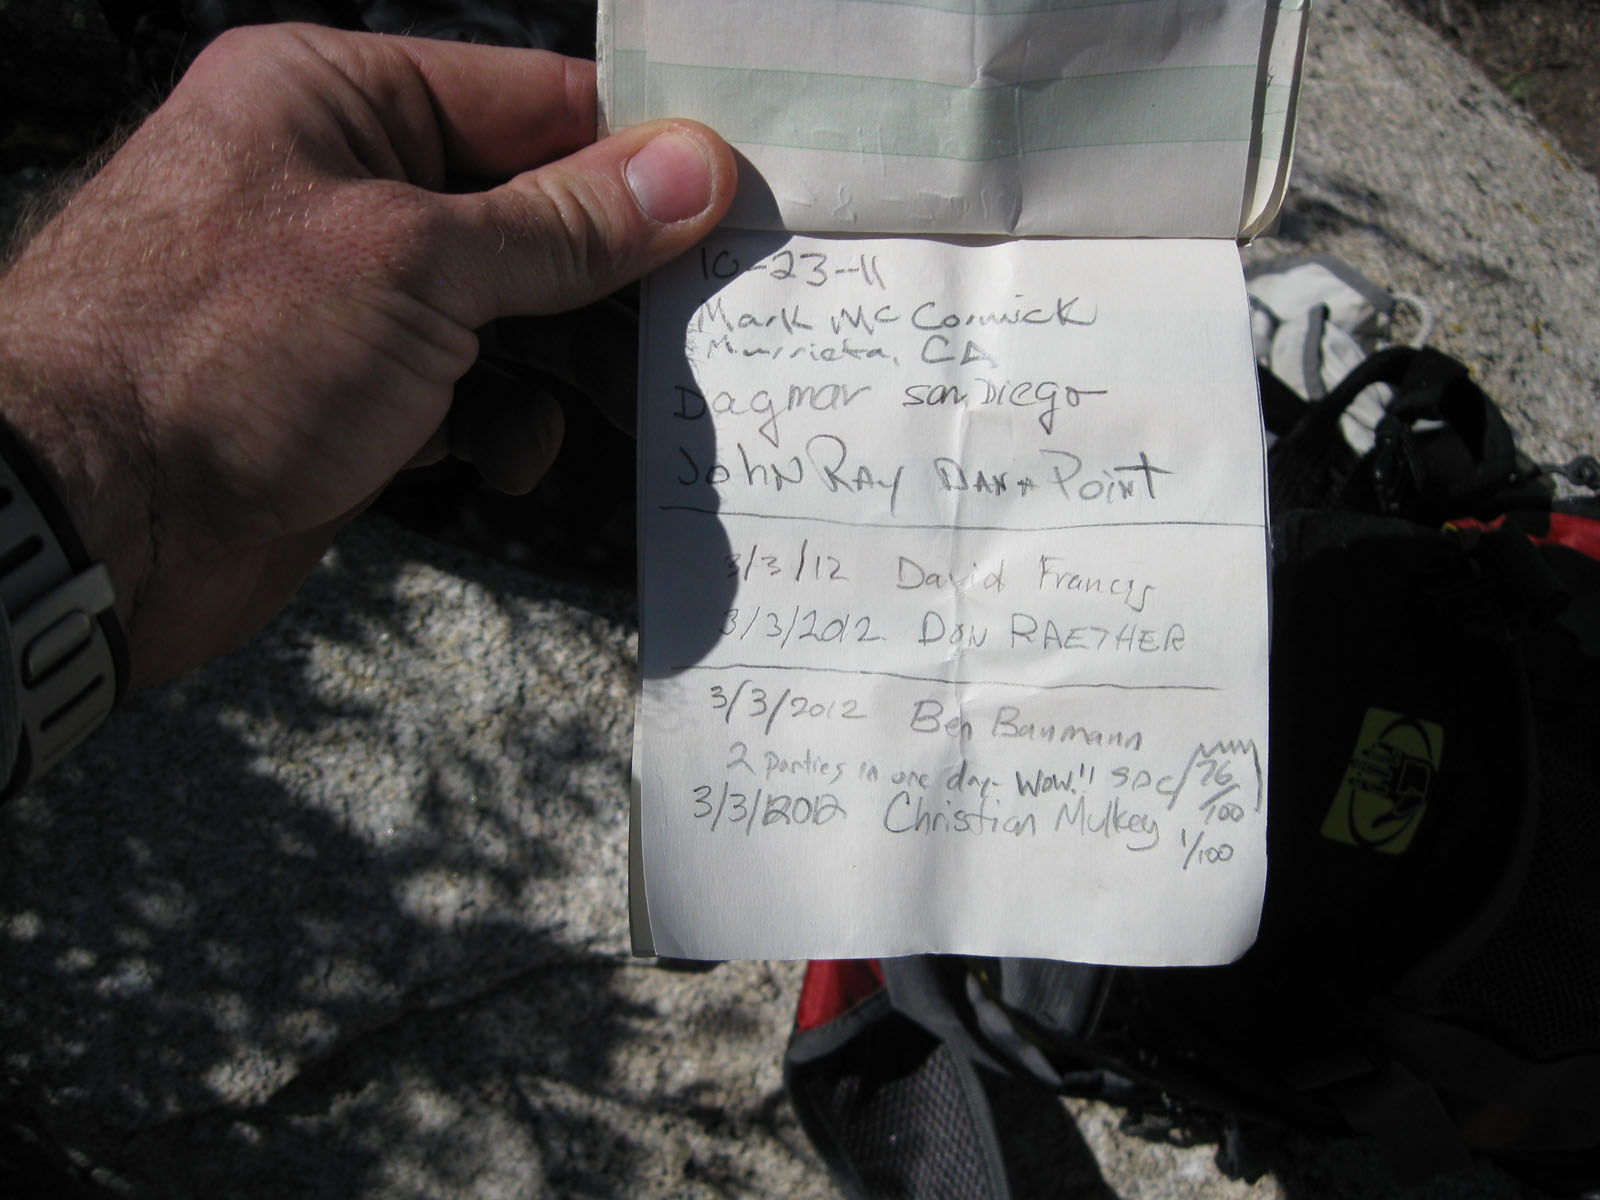 10-23-11
Mark McCormick
Murrieta, CA
Dagmar San Diego
John Ray Dana Point
3/3/12 David Francis
3/3/2012 DON RAETHER
3/3/2012 Ben Baumann
2 parties in one day- WOW!! SDC 76/100
3/3/2012 Christian Mulkey 1/100